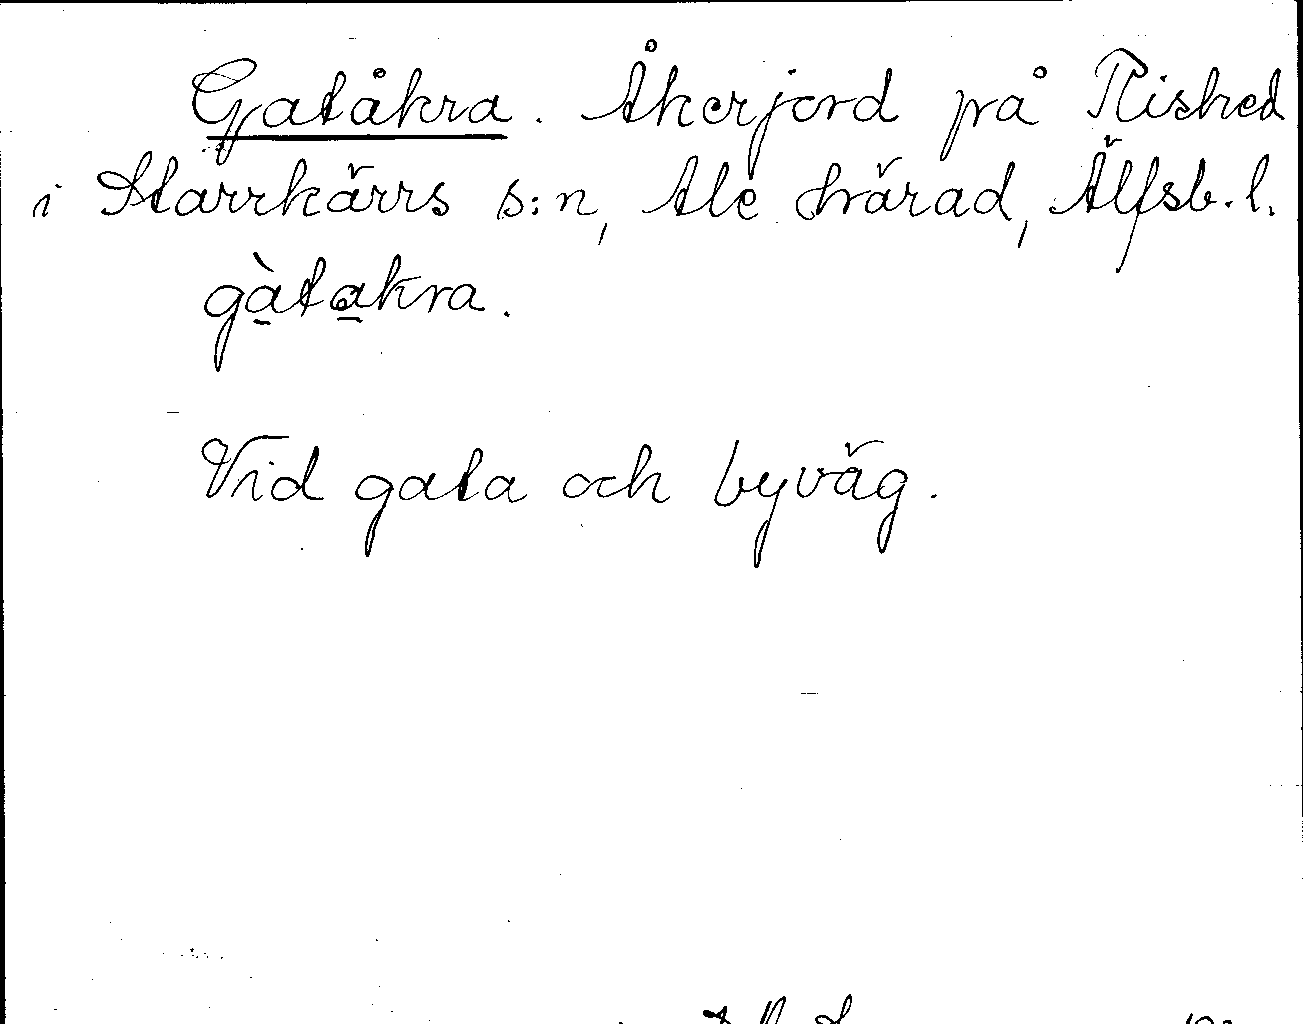 Gatåkra. Åkerjord på Rished
i Starrkärrs s:n, Ale härad, Älfsb. l.
gàtakra.
Vid gata och byväg.